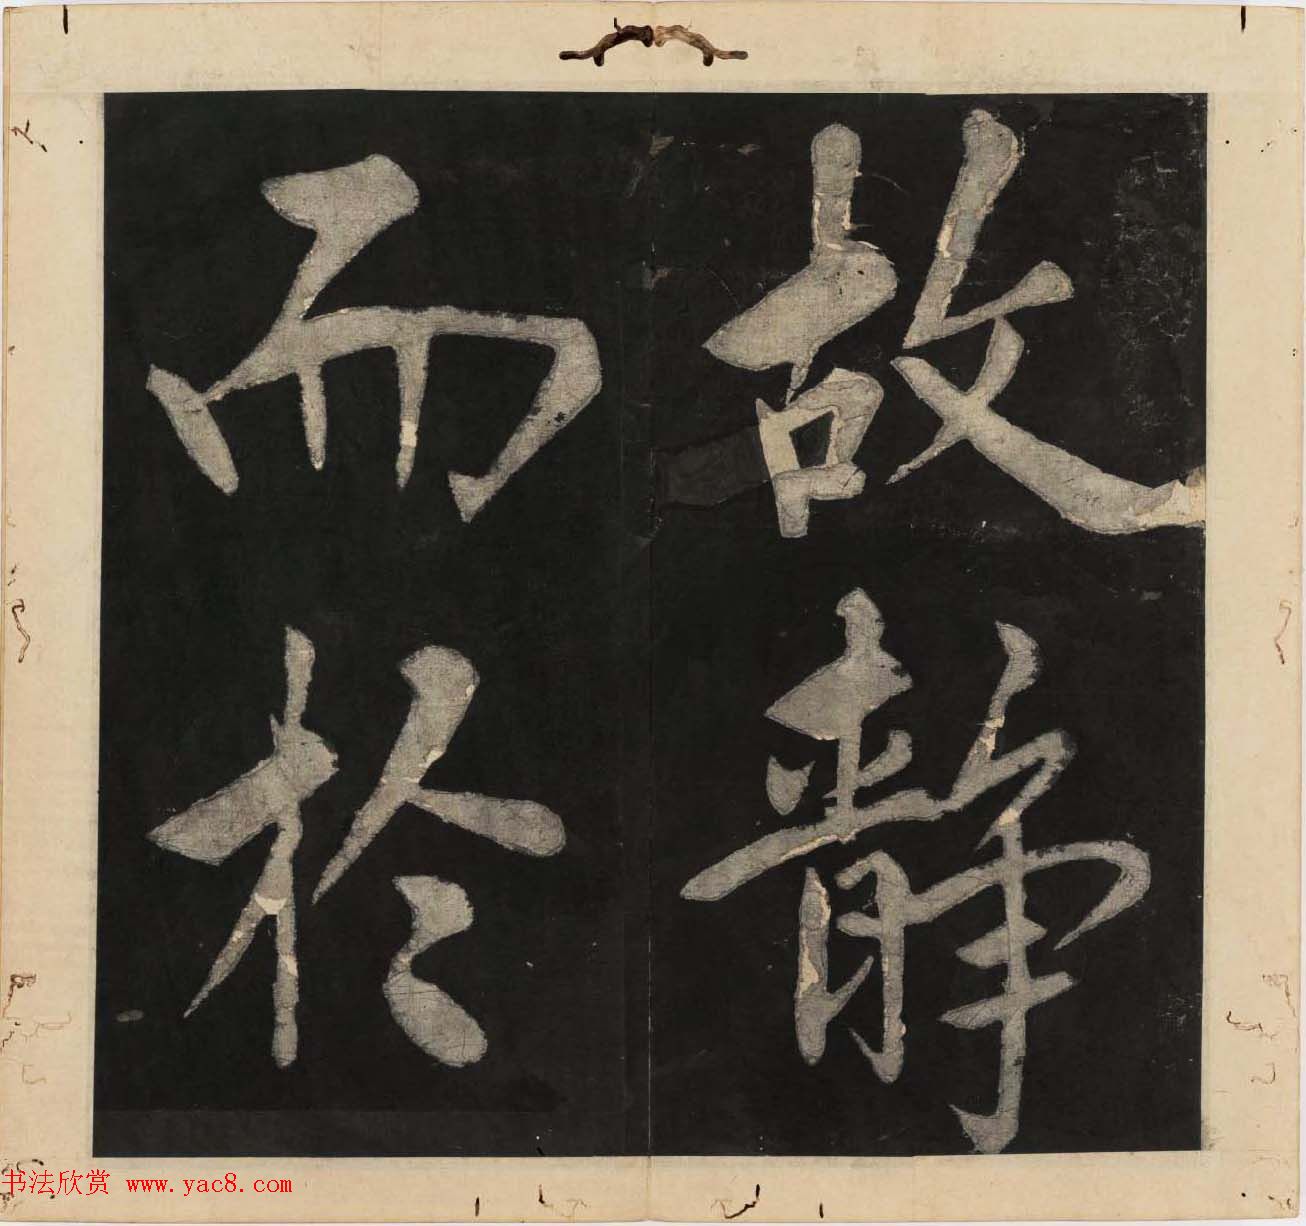 故静
而於
书法欣赏 www.yac8.com